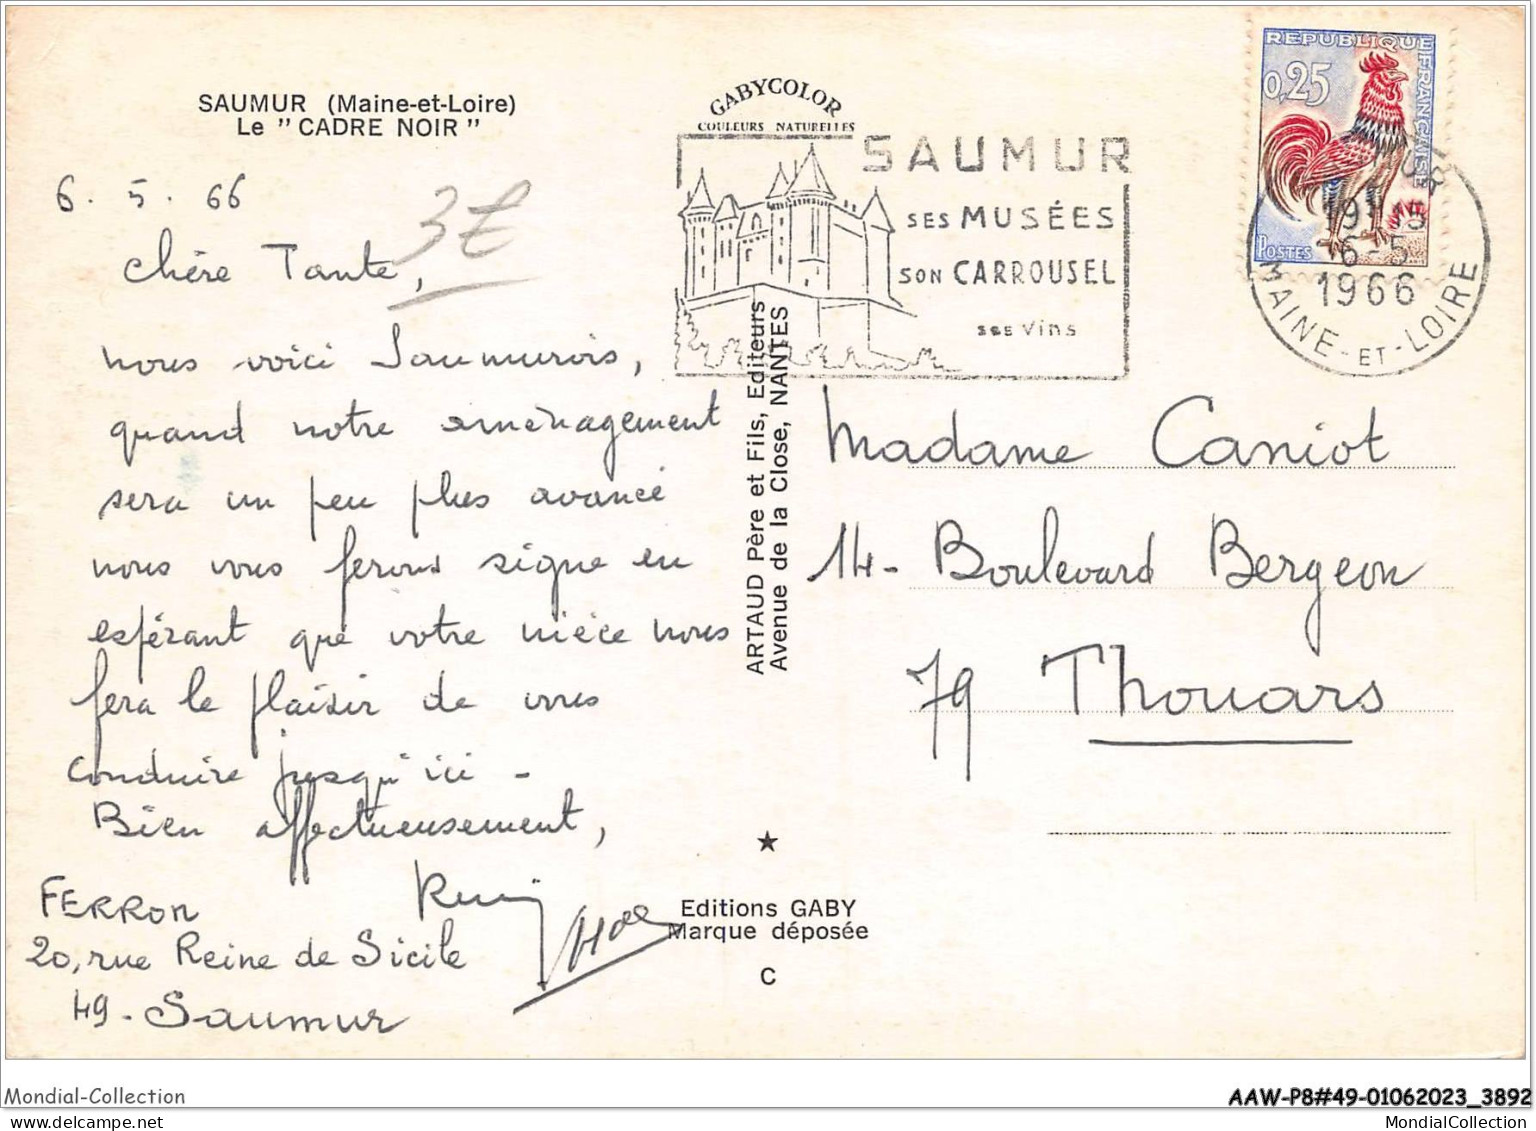 SAUMUR (Maine-et-Loire)
Le "CADRE NOIR"
6. 5. 66
3€
Chère Tante,
nous voici Saumurois,
quand notre aménagement
sera un peu plus avancé
nous vous ferons signe en
espérant que votre nièce nous
fera le plaisir de vous
conduire jusqu'ici -
Bien affectueusement,
FERRON
20, rue Reine de Sicile
49 - Saumur
GABYCOLOR
COULEURS NATURELLES
SAUMUR
SES MUSÉES
SON CARROUSEL
ses vins
ARTAUD Père et Fils, Editeurs
Avenue de la Close, NANTES
★
Editions GABY
Marque déposée
C
REPUBLIQUE FRANÇAISE
0,25
POSTES
19H15
6-5
1966
MAINE-ET-LOIRE
Madame Caniot
14 - Boulevard Bergeon
79 Thouars
Mondial-Collection
AAW-P8#49-01062023_3892
www.delcampe.net
MondialCollection